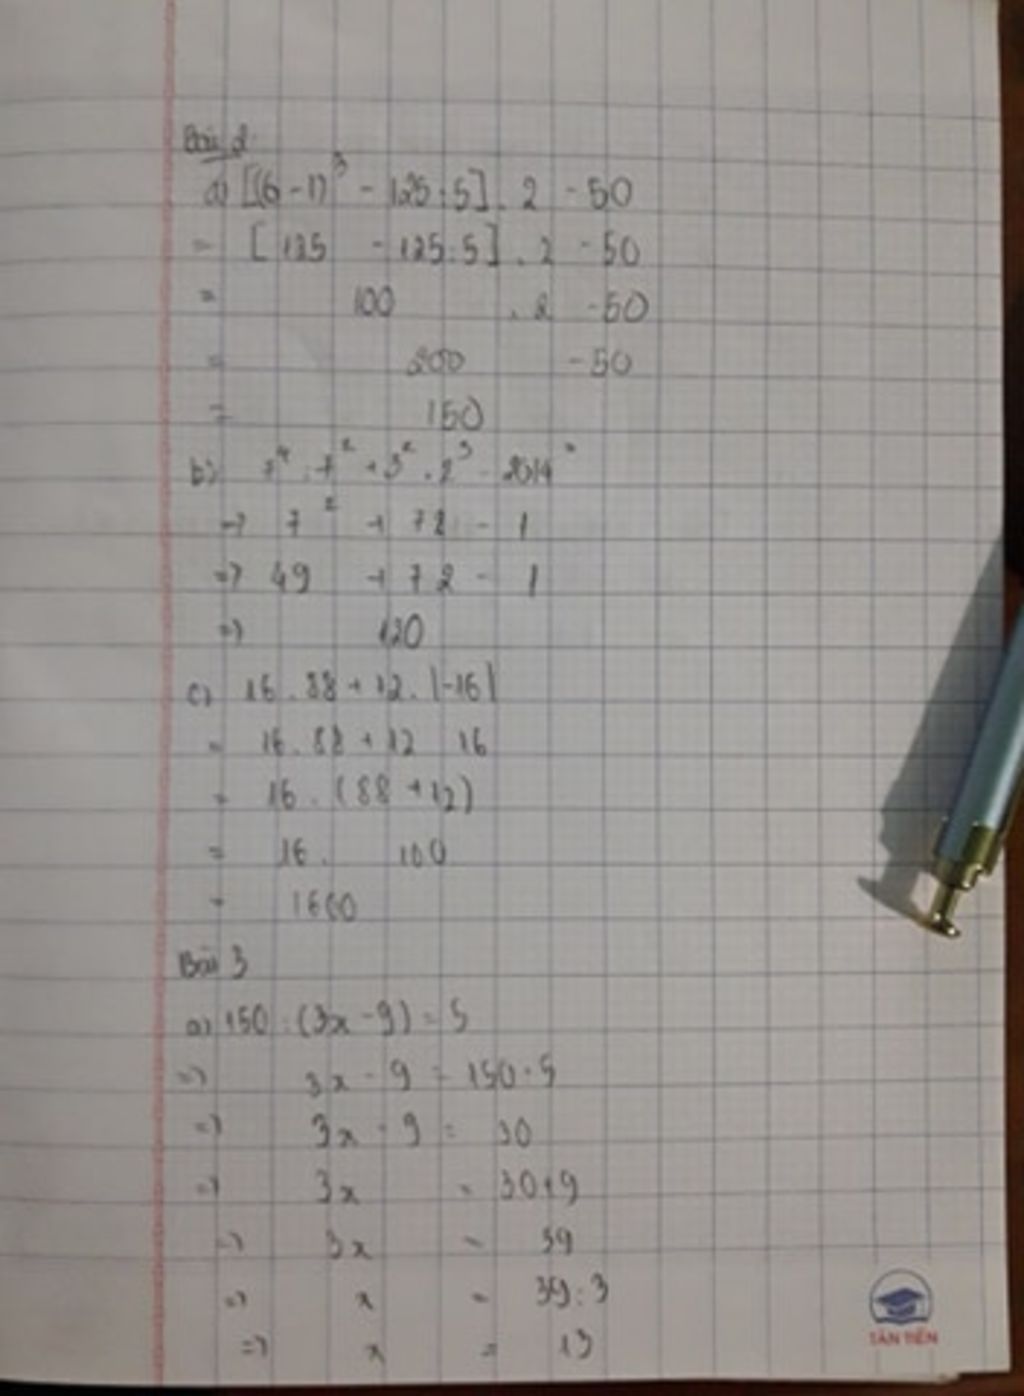 Bài 2
a) [(6-1)³ - 125:5] . 2 - 50
= [125 - 125:5] . 2 - 50
= 100 . 2 - 50
= 200 - 50
= 150
b) 7⁴ : 7² + 3² . 2³ - 2014⁰
=> 7² + 72 - 1
=> 49 + 72 - 1
=> 120
c) 16 . 88 + 12 . |-16|
= 16 . 88 + 12 16
= 16 . (88 + 12)
= 16 . 100
= 1600
Bài 3
a) 150 : (3x - 9) = 5
=> 3x - 9 = 150 : 5
=> 3x - 9 = 30
=> 3x = 30+9
=> 3x = 39
=> x = 39:3
=> x = 13
TÂN TIẾN